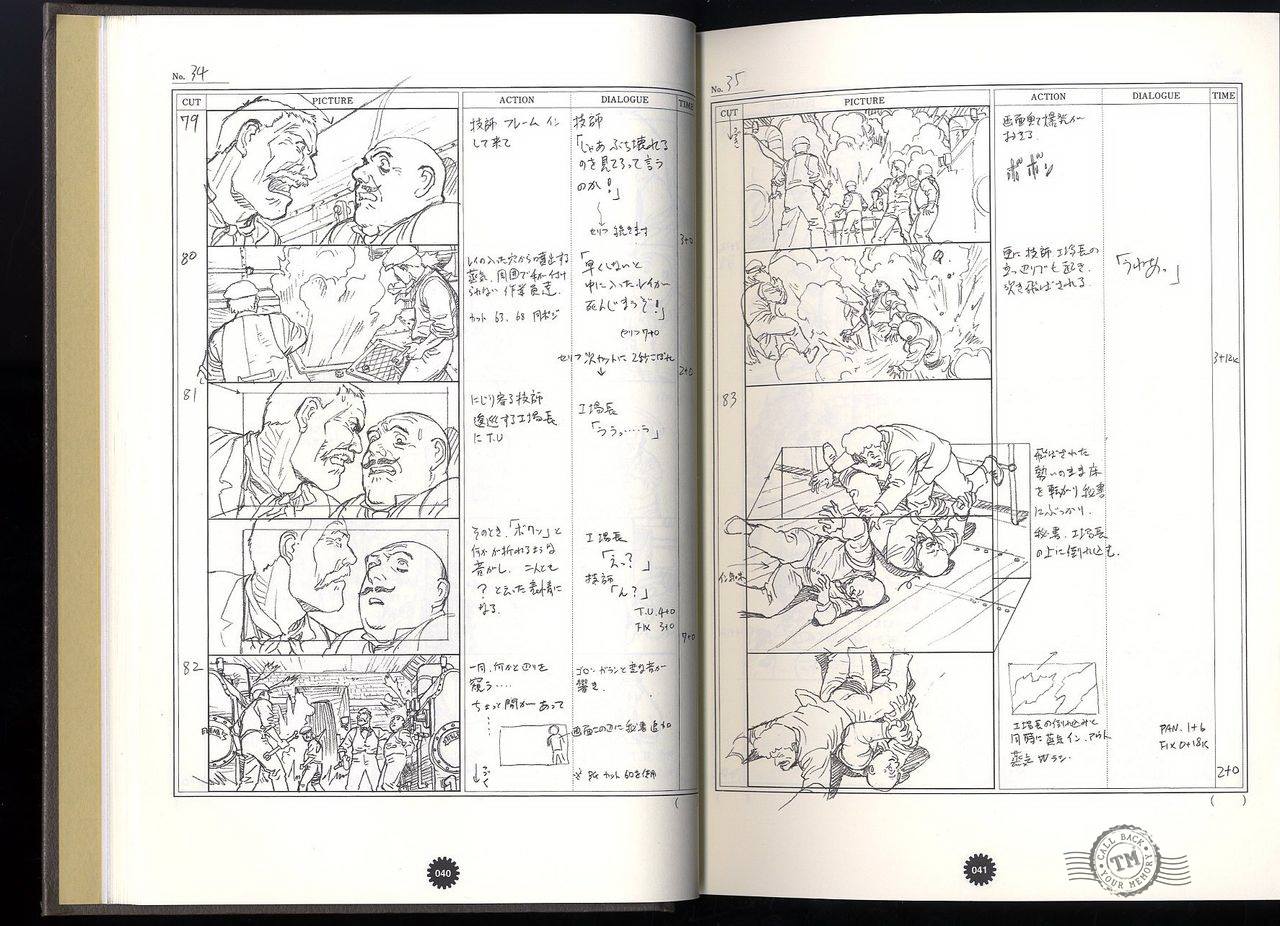 No. 34
CUT
PICTURE
ACTION
DIALOGUE
TIME
79
技師 フレーム イン
して来て
技師
「じゃあ ぶち壊れる
のを見てろって言う
のか!」
セリフ 続きます
3+0
80
レイの入った穴から噴出する
蒸気、周囲で手が付け
られない作業員達。
カット 63、68 同ポジ
「早くしないと
中に入ったレイが
死んじまうぞ!」
セリフ 7+0
セリフ次カットに 2秒こぼれ
2+0
81
にじり寄る技師
逡巡する工場長
に T.U
工場長
「ううっ……う」
そのとき、「ボクン」と
何かが折れるような
音がし、二人とも
? と云った表情に
なる。
工場長
「えっ? 」
技師
「ん? 」
T.U. 4+0
FIX 3+0
7+0
82
一同、何かと辺りを
窺う……
ちょっと間があって
ゴロン ガランと変な音が
響き。
画面この辺に秘書追加
※ BG カット 60を使用
つづく
040
No. 35
CUT
PICTURE
ACTION
DIALOGUE
TIME
つづき
画面奥で爆発が
おきる
ボボン
更に技師 工場長の
辺りでも起き、
吹き飛ばされる
「うわあっ」
3+12K
83
飛ばされた
勢いのまま床
を転がり秘書
にぶつかり、
秘書、工場長
の上に倒れ込む。
工場長の倒れ込みと
同時に蒸気イン、アウト
PAN. 1+6
FIX 0+18K
2+0
( )
041
CALL BACK
TM
YOUR MEMORY